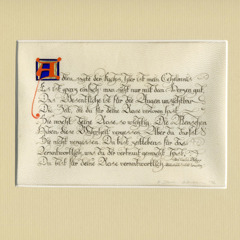 Adieu, sagte der Fuchs, hier ist mein Geheimnis.
Es ist ganz einfach: man sieht nur mit dem Herzen gut.
Das Wesentliche ist für die Augen unsichtbar.
Die Zeit, die du für deine Rose verloren hast,
Sie macht deine Rose so wichtig. Die Menschen
haben diese Wahrheit vergessen. Aber du darfst
sie nicht vergessen. Du bist zeitlebens für das
verantwortlich, was du dir vertraut gemacht hast.
Du bist für deine Rose verantwortlich